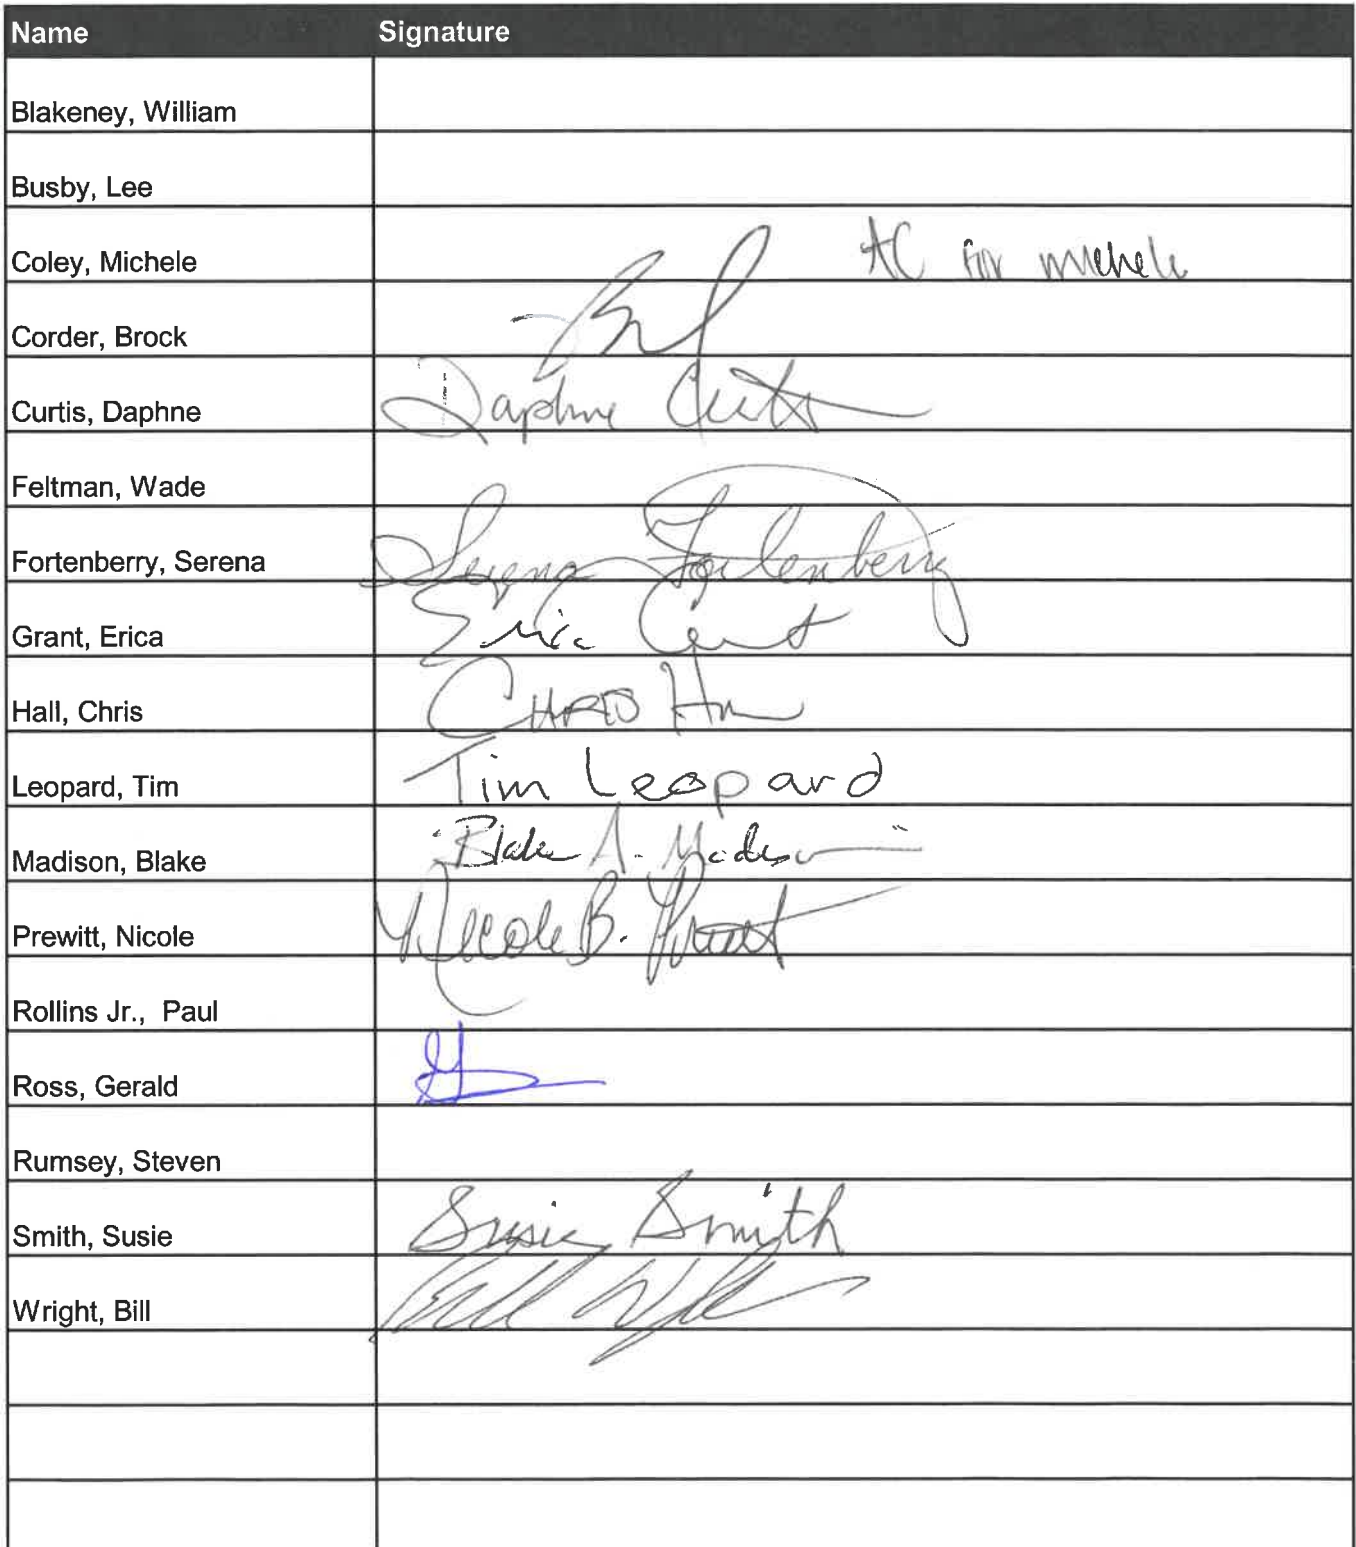 Name Signature
Blakeney, William
Busby, Lee
Coley, Michele for michele
Corder, Brock
Curtis, Daphne Daphne Curtis
Feltman, Wade
Fortenberry, Serena Serena Fortenberry
Grant, Erica Erica Grant
Hall, Chris CHRIS
Leopard, Tim Tim Leopard
Madison, Blake Blake A. Madison
Prewitt, Nicole Nicole B. Prewitt
Rollins Jr., Paul
Ross, Gerald
Rumsey, Steven
Smith, Susie Susie Smith
Wright, Bill Bill